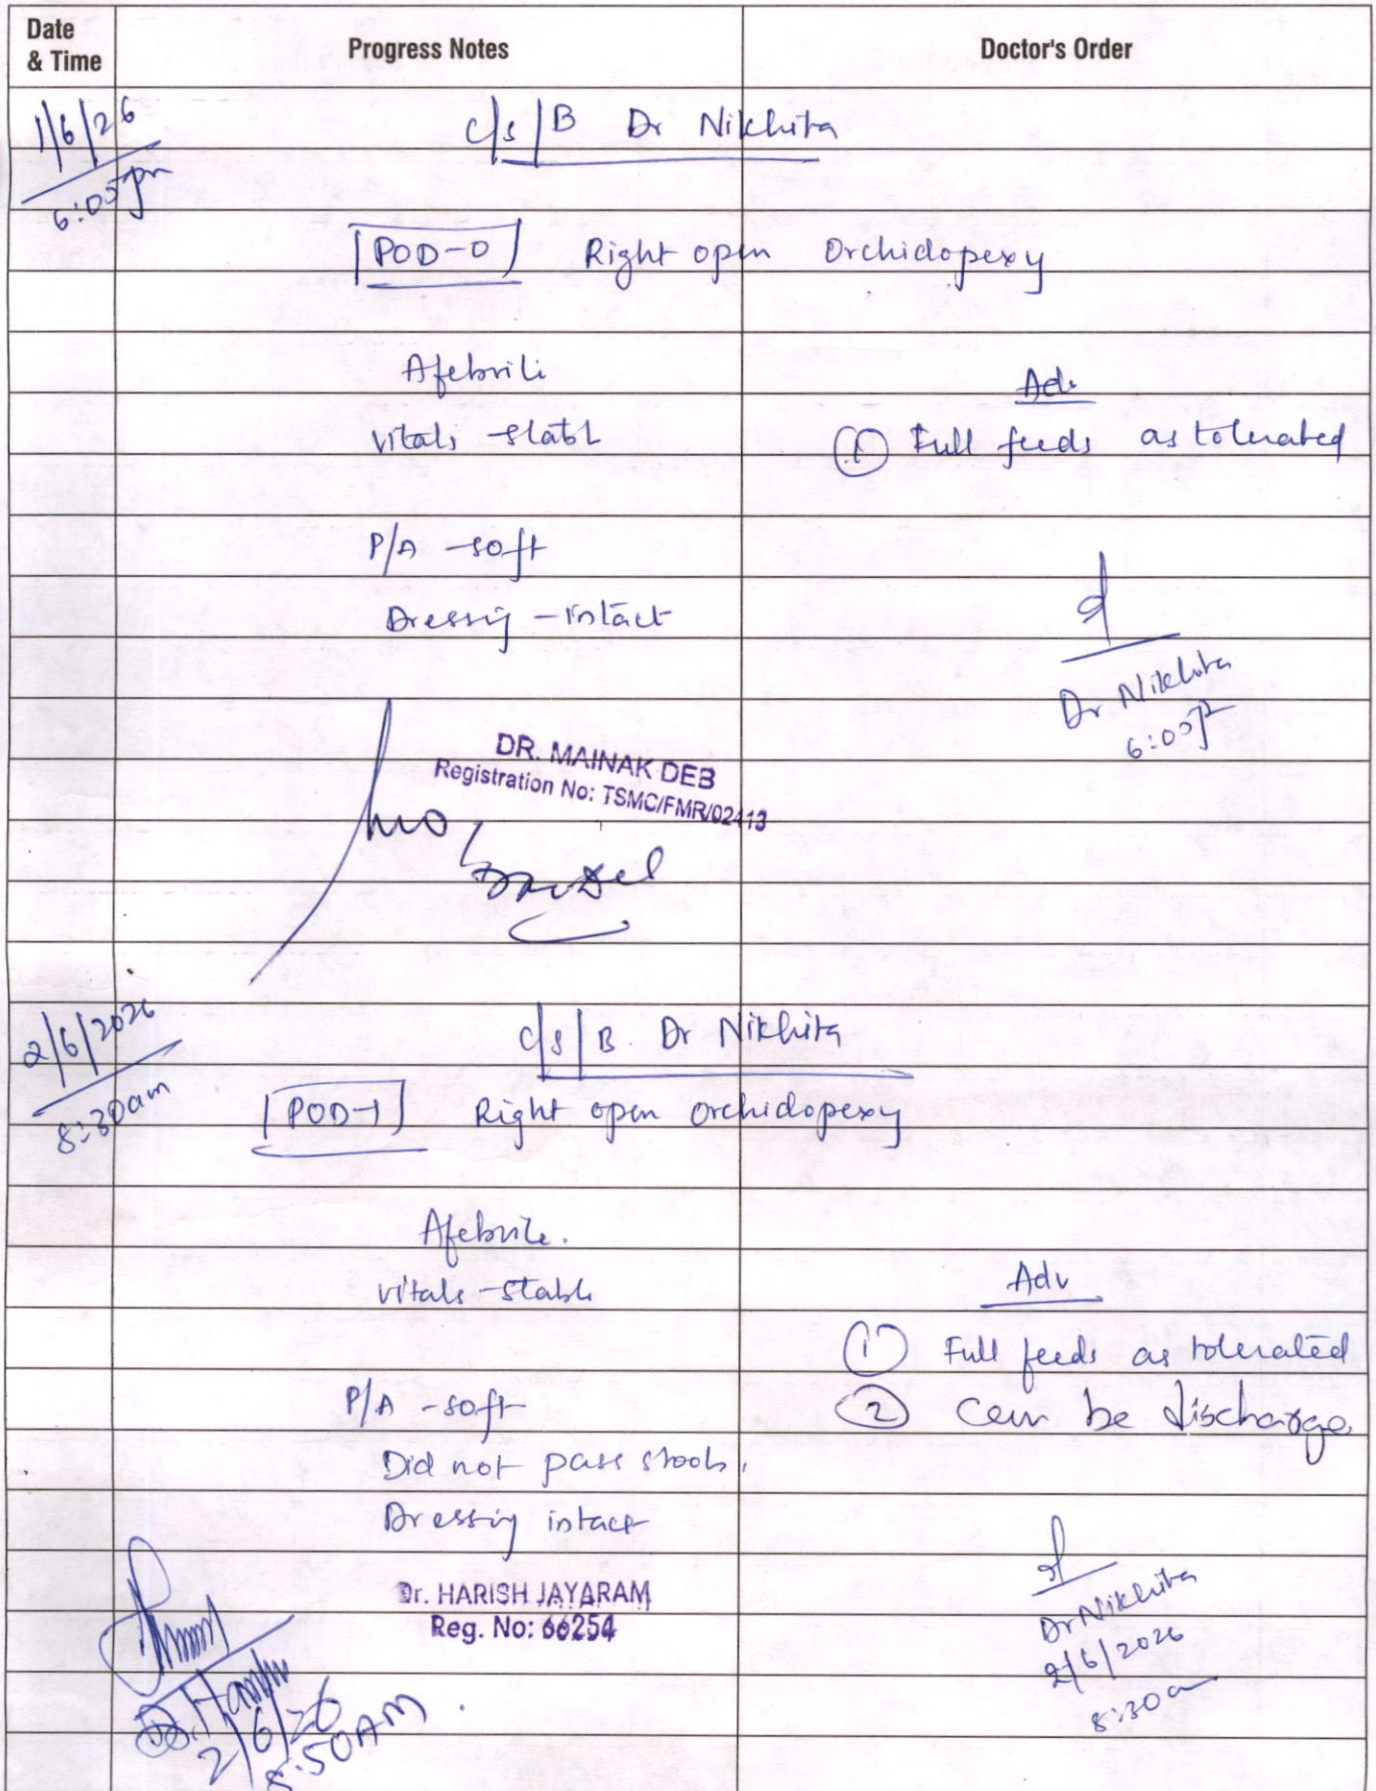 Date & Time
Progress Notes
Doctor's Order
1/6/26
6:05pm
C/S/B Dr Nikhita
POD-0 Right open Orchidopexy
Afebrile
Vitals stable
Adv
① Full feeds as tolerated
P/A - soft
Dressing - intact
Dr. Nikhita
6:05p
DR. MAINAK DEB
Registration No: TSMC/FMR/02413
2/6/2026
8:30am
C/S/B. Dr Nikhita
POD-1 Right open orchidopexy
Afebrile.
vitals - stable
Adv
① Full feeds as tolerated
② Can be discharge
P/A - soft
Did not pass stools.
Dressing intact
Dr. HARISH JAYARAM
Reg. No: 66254
Dr Nikhita
2/6/2026
8:30am
2/6/26
8:50AM